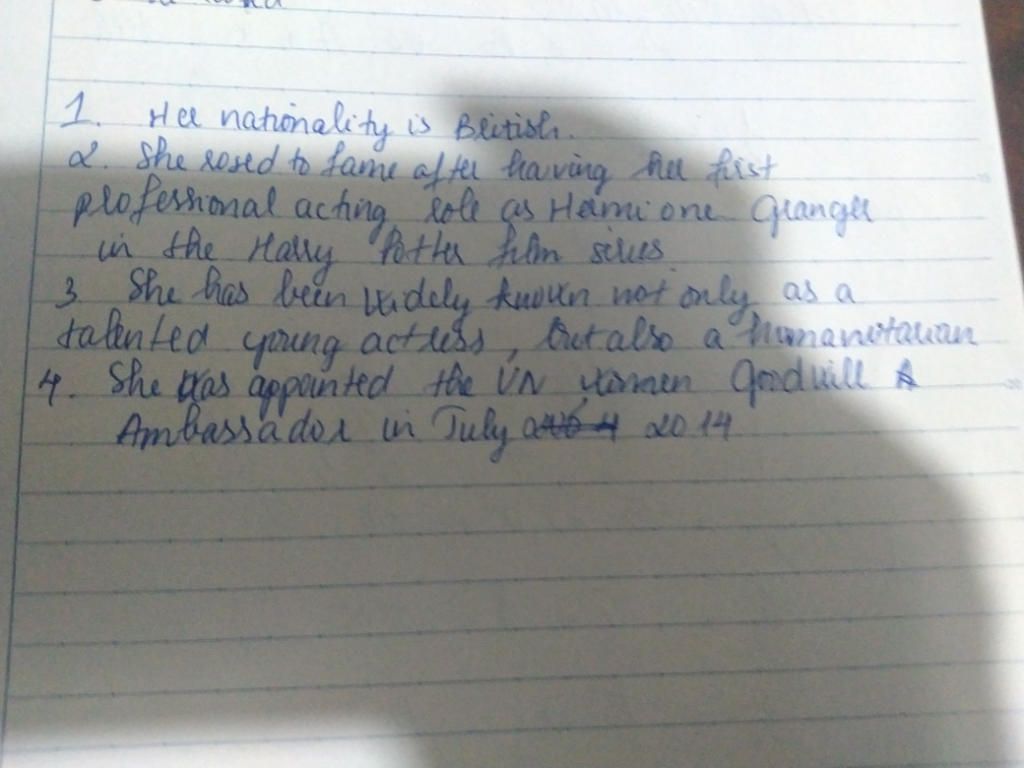 1. Her nationality is British.
2. She rosed to fame after having her first
professional acting role as Hermione Granger
in the Harry Potter film series
3 She has been widely known not only as a
talented young actress, but also a humanitarian
4. She was appointed the UN women Goodwill
Ambassador in July 2014